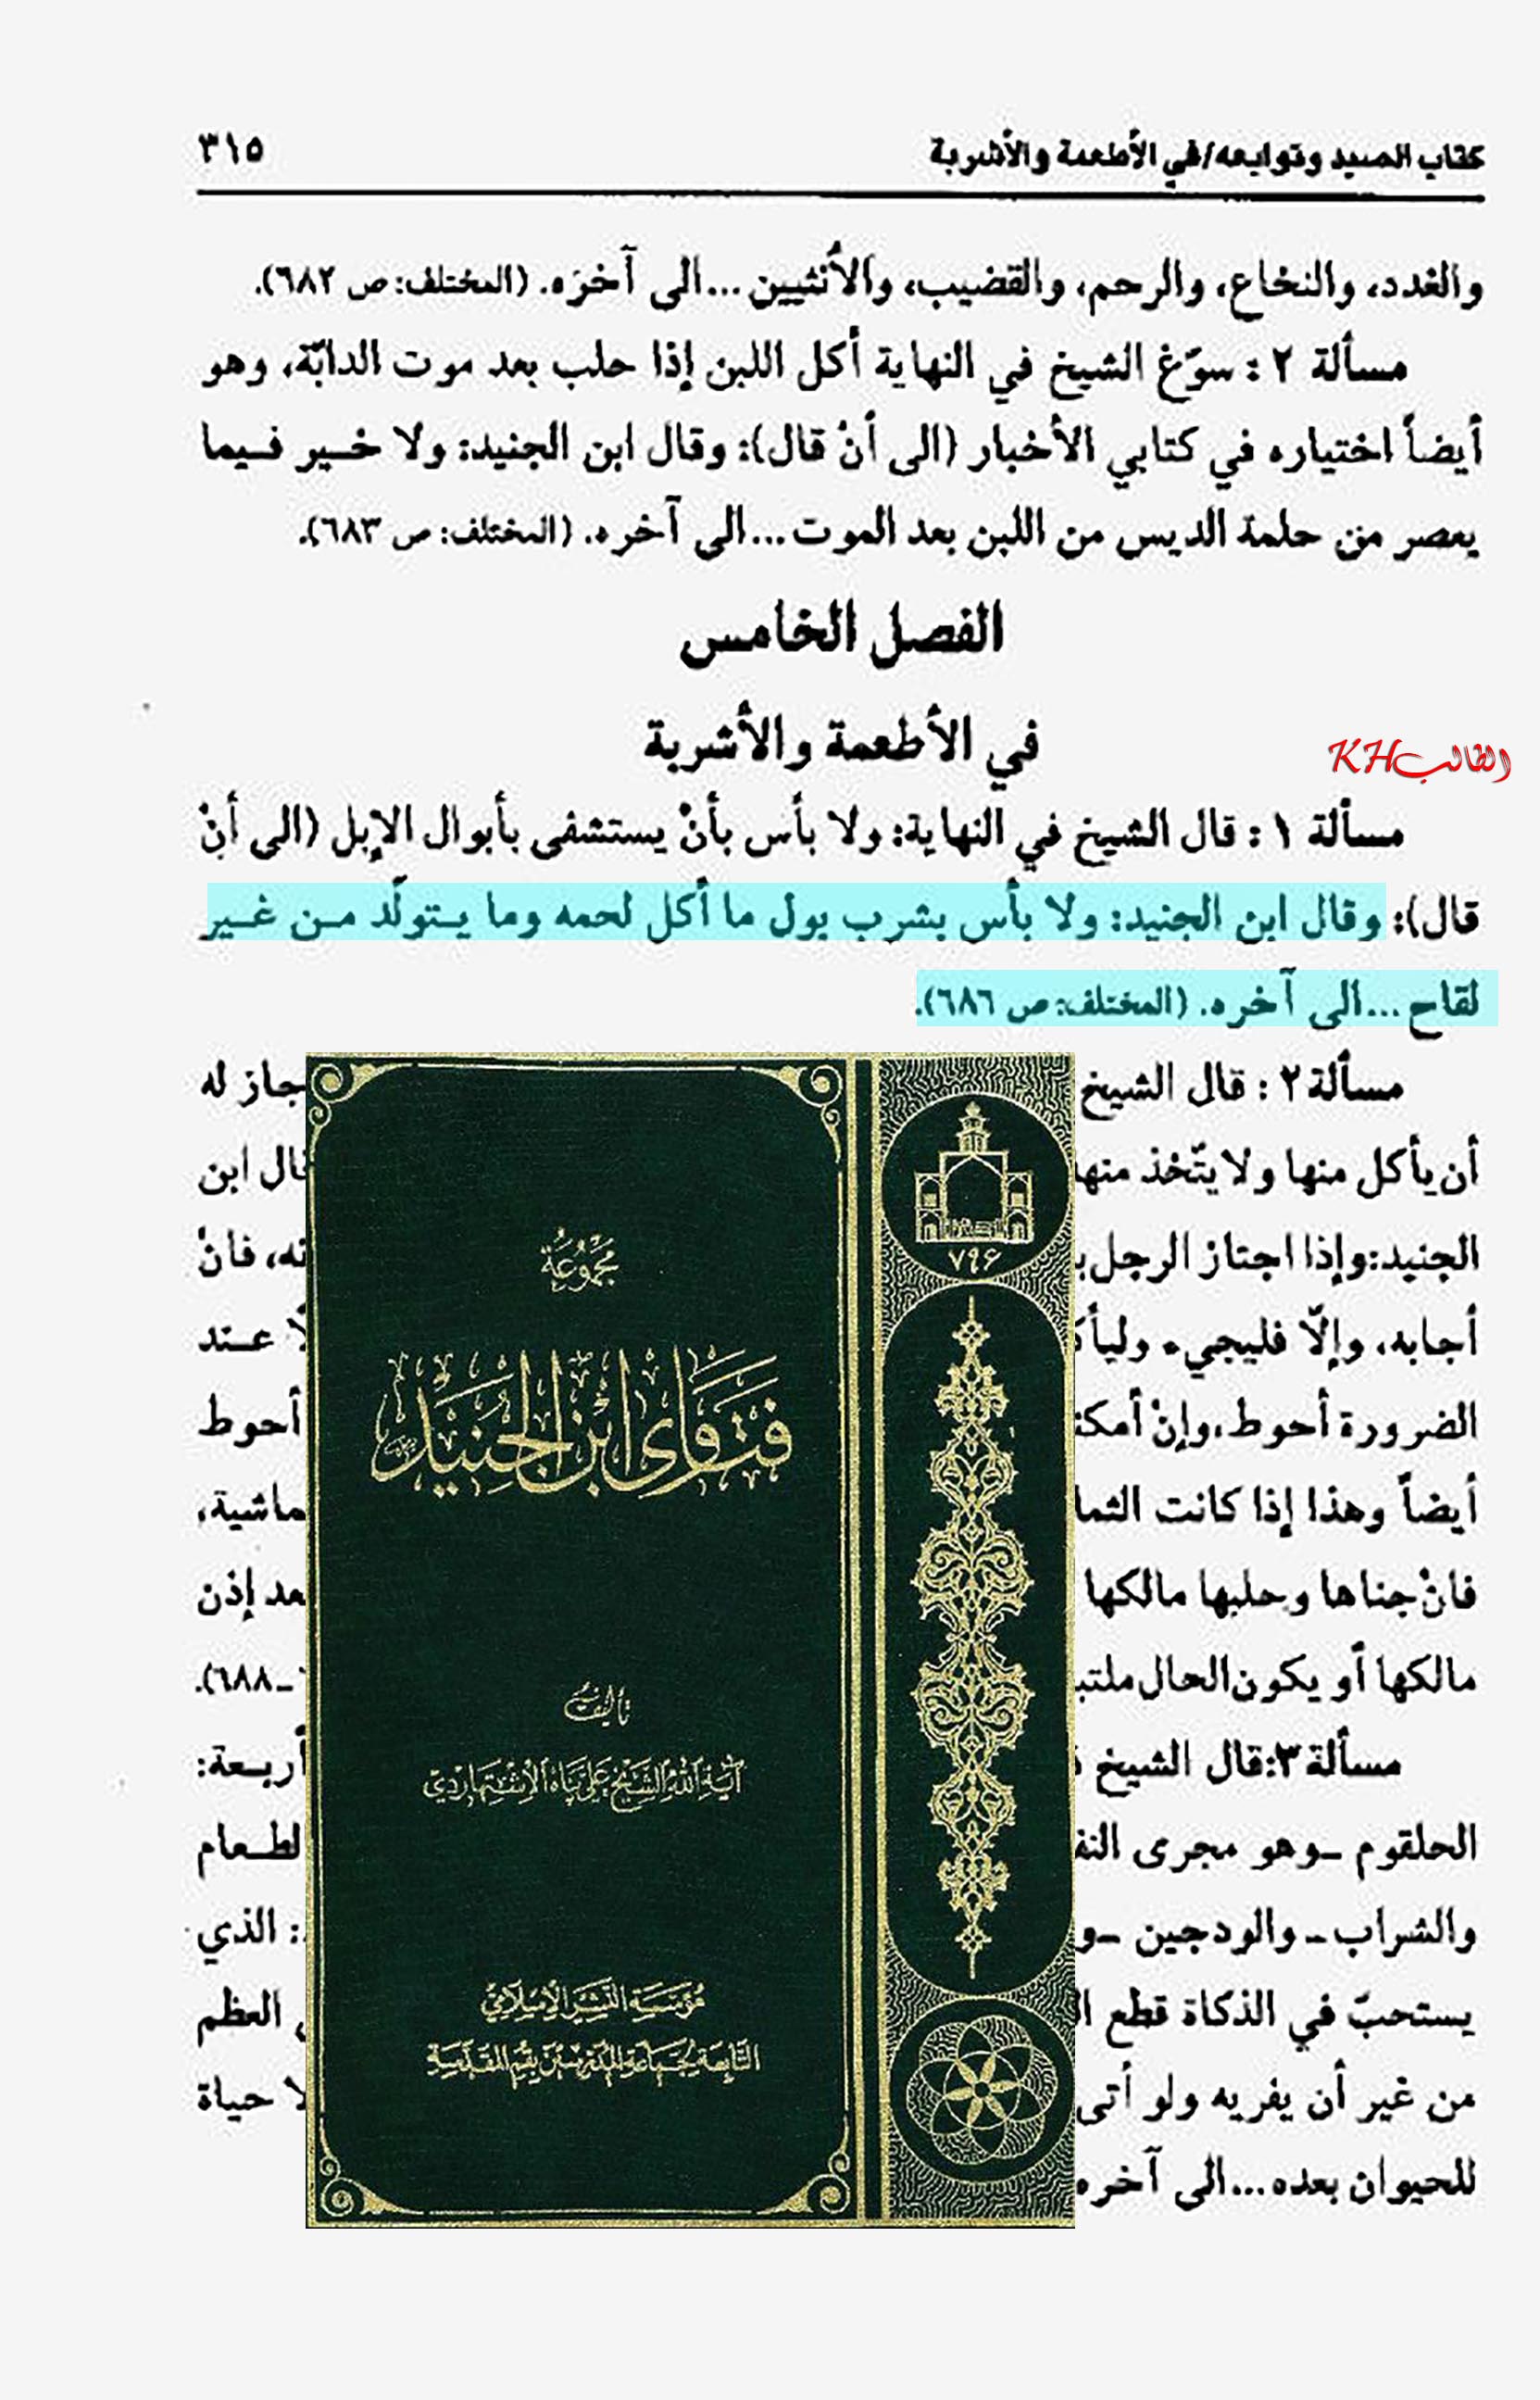 كتاب الصيد وتوابعه/في الأطعمة والأشربة ٣١٥
والغدد، والنخاع، والرحم، والقضيب، والأنثيين...الى آخره. (المختلف: ص ٦٨٢).
مسألة ٢ : سوّغ الشيخ في النهاية أكل اللبن إذا حلب بعد موت الدابّة، وهو
أيضاً اختياره في كتابي الأخبار (الى أنْ قال): وقال ابن الجنيد: ولا خير فيما
يعصر من حلمة الديس من اللبن بعد الموت...الى آخره. (المختلف: ص ٦٨٣).
الفصل الخامس
في الأطعمة والأشربة
الطالب KH
مسألة ١ : قال الشيخ في النهاية: ولا بأس بأنْ يستشفى بأبوال الإبل (الى أنْ
قال): وقال ابن الجنيد: ولا بأس بشرب بول ما أكل لحمه وما يتولّد من غير
لقاح...الى آخره. (المختلف: ص ٦٨٦).
مسألة ٢ : قال الشيخ جاز له
أن يأكل منها ولا يتّخذ منها قال ابن
الجنيد: وإذا اجتاز الرجل فانْ
أجابه، وإلّا فليجيء عند
الضرورة أحوط، وإنْ أحوط
أيضاً وهذا إذا كانت ماشية،
فانْ جناها وحلبها مالكها إذن
مالكها أو يكون الحال ٦٨٨).
مسألة ٣: قال الشيخ أربعة:
الحلقوم ـ وهو مجرى
والشراب ـ والودجين الذي
يستحبّ في الذكاة قطع العظم
من غير أن يفريه ولو أتى حياة
للحيوان بعده...الى آخره
٧٩۶
مجموعة
فتاوى ابن الجنيد
تأليف
آية الله الشيخ علي پناه الإشتهاردي
مؤسسة النشر الإسلامي
التابعة لجماعة المدرسين بقم المقدسة